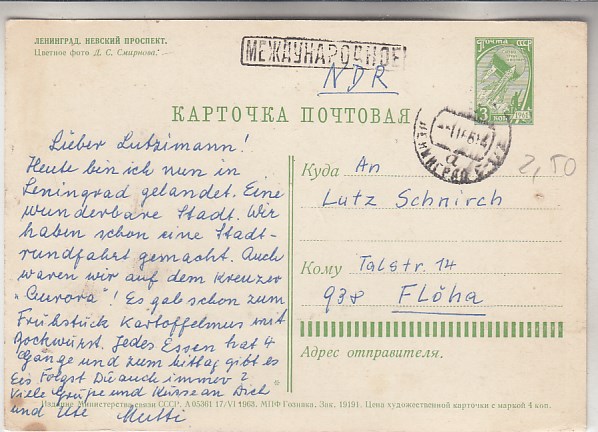 ЛЕНИНГРАД. НЕВСКИЙ ПРОСПЕКТ.
Цветное фото Д. С. Смирнова.
МЕЖДУНАРОДНОЕ
NDR
ПОЧТА СССР
3 КОП
КАРТОЧКА ПОЧТОВАЯ
ЛЕНИНГРАД
2,50
Lieber Lutzimann!
Heute bin ich nun in
Leningrad gelandet. Eine
wunderbare Stadt. Wir
haben schon eine Stadt-
rundfahrt gemacht. Auch
waren wir auf dem Kreuzer
„Aurora"! Es gab schon zum
Frühstück Kartoffelmus mit
Bockwurst. Jedes Essen hat 4
Gänge und zum Mittag gibt es
Eis Folgst Du auch immer?
Viele Grüße und Küsse an Dich
und Ute Mutti
Куда An
Lutz Schnirch
Кому Talstr. 14
938 Flöha
Адрес отправителя.
Издание Министерства связи СССР. А 05361 17/VI 1963. МПФ Гознака. Зак. 19191. Цена художественной карточки с маркой 4 коп.